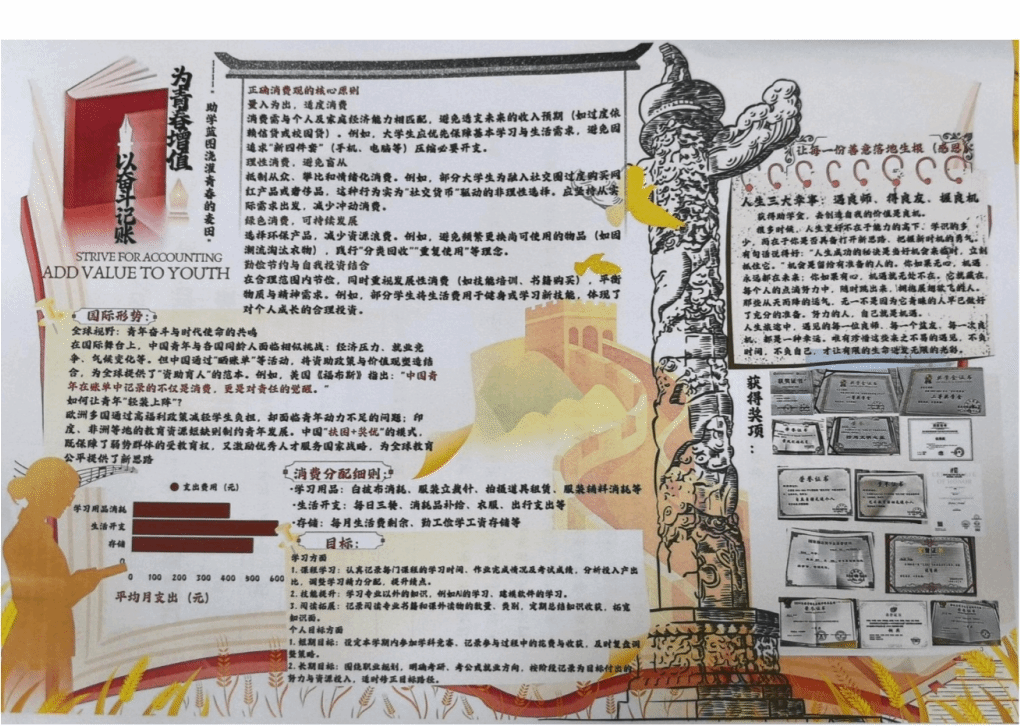 为青春增值
以奋斗记账
助学蓝图浇灌青春的麦田
STRIVE FOR ACCOUNTING
ADD VALUE TO YOUTH
正确消费观的核心原则
量入为出，适度消费
消费需与个人及家庭经济能力相匹配，避免透支未来的收入预期（如过度依
赖信贷或校园贷）。例如，大学生应优先保障基本学习与生活需求，避免因
追求“新四件套”（手机、电脑等）压缩必要开支。
理性消费，避免盲从
抵制从众、攀比和情绪化消费。例如，部分大学生为融入社交圈过度购买网
红产品或奢侈品，这种行为实为“社交货币”驱动的非理性选择。应坚持从实
际需求出发，减少冲动消费。
绿色消费，可持续发展
选择环保产品，减少资源浪费。例如，避免频繁更换尚可使用的物品（如因
潮流淘汰衣物），践行“分类回收”“重复使用”等理念。
勤俭节约与自我投资结合
在合理范围内节俭，同时重视发展性消费（如技能培训、书籍购买），平衡
物质与精神需求。例如，部分学生将生活费用于健身或学习新技能，体现了
对个人成长的合理投资。
国际形势：
全球视野：青年奋斗与时代使命的共鸣
在国际舞台上，中国青年与各国同龄人面临相似挑战：经济压力、就业竞
争、气候变化等。但中国通过“晒账单”等活动，将资助政策与价值观塑造结
合，为全球提供了“资助育人”的范本。例如，美国《福布斯》指出：“中国青
年在账单中记录的不仅是消费，更是对责任的觉醒。”
如何让青年“轻装上阵”？
欧洲多国通过高福利政策减轻学生负担，却面临青年动力不足的问题；印
度、非洲等地的教育资源短缺则制约青年发展。中国“扶困+奖优”的模式，
既保障了弱势群体的受教育权，又激励优秀人才服务国家战略，为全球教育
公平提供了新思路
支出费用（元）
学习用品消耗
生活开支
存储
0
0 100 200 300 400 500 600
平均月支出（元）
消费分配细则：
·学习用品：白坯布消耗、服装立裁针、拍摄道具租赁、服装辅料消耗等
·生活开支：每日三餐、消耗品补给、衣服、出行支出等
·存储：每月生活费剩余、勤工俭学工资存储等
目标：
学习方面
1. 课程学习：认真记录每门课程的学习时间、作业完成情况及考试成绩，分析投入产出
比，调整学习精力分配，提升绩点。
2. 技能提升：学习专业以外的知识，例如Ai的学习、建模软件的学习。
3. 阅读拓展：记录阅读专业书籍和课外读物的数量、类别，定期总结知识收获，拓宽
知识面。
个人目标方面
1. 短期目标：设定本学期内参加学科竞赛，记录参与过程中的花费与收获，及时复盘调
整策略。
2. 长期目标：围绕职业规划，明确考研、考公或就业方向，按阶段记录为目标付出的
努力与资源投入，适时修正目标路径。
让每一份善意落地生根（感恩）
人生三大幸事：遇良师、得良友、握良机
获得助学金，去创造自我的价值是良机。
很多时候，人生变好不在于能力的高下，学识的多
少，而在于你是否具备打开新思路，把握新时机的勇气。
有句话说得好：“人生成功的秘诀是当好机会来临时，立刻
抓住它。”机会是留给有准备的人的。你如果无心，机遇
永远都在未来；你如果有心，机遇就无处不在。它就藏在，
每个人的点滴努力中，随时跳出来，拥抱展翅欲飞的人。
那些从天而降的运气，无一不是因为它青睐的人早已做好
了充分的准备。努力的人，自己就是机遇。
人生旅途中，遇见的每一位良师，每一个益友，每一次良
机，都是一种幸运。唯有珍惜这些来之不易的遇见，不负
时间，不负自己，才让有限的生命迸发无限的光彩。
获得奖项：
荣誉证书